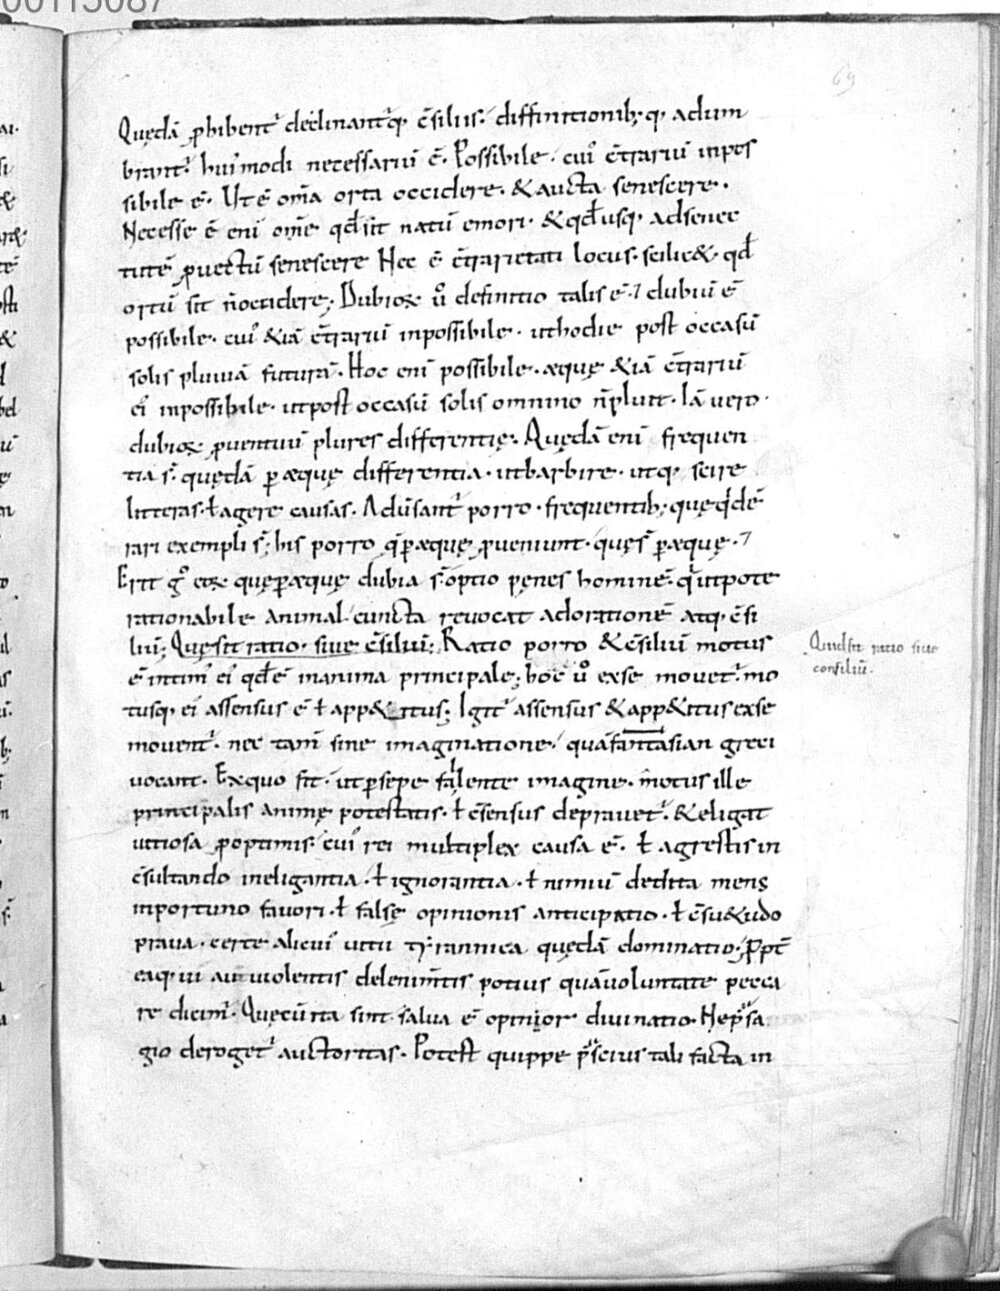 00115087
69
Quędā ꝓhibent᷑ declinantq; c̄siliis· diffinitionib; q; adum
brant᷑· hui᷒modi necessariū ē· Possibile· cui᷒ c̄trariū inpos
sibile ē· Ut ē om̄a orta occidere· & aucta senescere·
Necesse ē eni om̄e qd̄ sit natū emori· & qd̄ usq; ad senec
tutē ꝓvectū senescere Hec ē c̄trarietati locus· scilic&· qd̄
ortū sit n̄ occidere; Dubioꝝ ū definitio talis ē· ⁊ dubiū ē
possibile· cui᷒ & iā c̄trariū inpossibile· ut hodie post occasū
solis pluviā futurā· Hoc eni possibile· æquę & iā c̄trariū
ei᷒ inpossibile· ut post occasū solis omnino n̄ pluit· Iā vero·
dubioꝝ ꝓventuū plures differentię· Quędā eni frequen
tia s̄· quędā ꝑ æquę differentia· ut barbire· utq; scire
litteras· ł agere causas· Adūsant᷑ porro· frequentib; quę q'dē
rari exempli s̄; his porro q̄ ꝑæquę ꝓveniunt· quę s̄ ꝑæquę· ⁊
Erit gͦ eaꝝ quę ꝑæquę dubia s̄ optio pęnes hominē· q̄ utpote
rationabile animal· cuncta revocat ad orationē atq; c̄si
liū; Quę sit ratio· sive c̄siliū; Ratio porro & c̄siliū motus
ē intim᷒ ei᷒ qd̄ ē in anima principale; hoc ū ex se movet᷑· mo
tusq; ei᷒ assensus ē ł app&itus; Igit᷑ assensus & app&itus ex se
movent᷑· nec tam̄ sine imaginatione· quā fantasian greci
vocant· Ex quo fit· ut ꝑ sępe fallente imagine· motus ille
principalis animę potestatis· ł c̄sensus depravet᷑· & eligat
vitiosa ꝓ optimis· cui᷒ rei multiplex causa ē· ł agrestis in
c̄sultando ineligantia· ł ignorantia· ł nimiū dedita mens
inportuno favori· ł falsę opinionis anticipatio· ł c̄su&udo
prava· certe alicui᷒ vitii tyrannica quędā dominatio; ꝓpt̄
eaq; vi aut violentis delenim̄tis potius quā voluntate pecca
re dicim᷒· Quę cū ita sint salva ē opinor divinatio· Ne p̄sa
gio deroget᷑ auctoritas· Potest quippe p̄scius tali facta in
Quid sit ratio sive
consiliū·